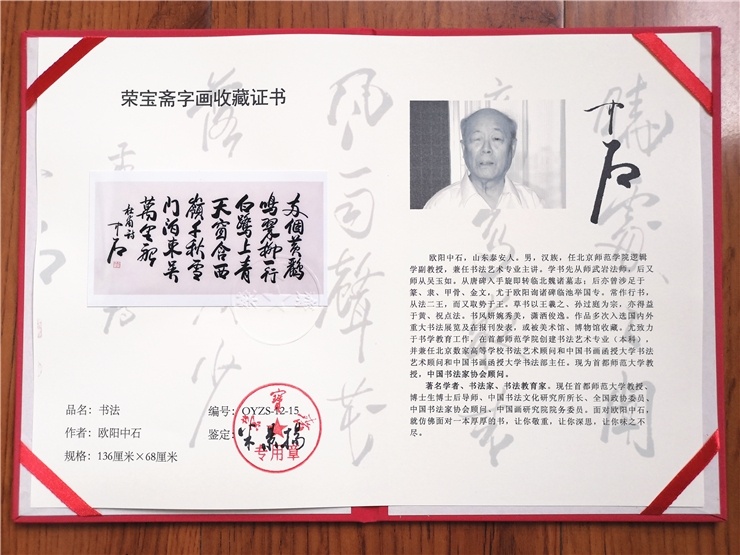 荣宝斋字画收藏证书
两個黄鸝
鳴翠柳一行
白鷺上青
天窗含西
嶺千秋雪
門泊東吴
萬里船
杜甫詩
中石
品名：书法
作者：欧阳中石
规格：136厘米×68厘米
编号：OYZS-12-15
鉴定：
专用章
中石
欧阳中石，山东泰安人。男，汉族，任北京师范学院逻辑
学副教授，兼任书法艺术专业主讲。学书先从师武岩法师，后又
师从吴玉如。从唐碑入手旋即转临北魏诸墓志；后亦曾涉足于
篆、隶、甲骨、金文，尤于欧阳询诸碑临池举国专。常作行书，
从法二王，而又取势于王。草书以王羲之、孙过庭为宗，亦得益
于黄、祝点法。书风妍婉秀美，潇洒俊逸。作品多次入选国内外
重大书法展览及在报刊发表，或被美术馆、博物馆收藏。尤致力
于书学教育工作，在首都师范学院创建书法艺术专业（本科），
并兼任北京数家高等学校书法艺术顾问和中国书画函授大学书法
艺术顾问和中国书画函授大学书法部主任。现为首都师范大学教
授，中国书法家协会顾问。
著名学者、书法家、书法教育家。现任首都师范大学教授、
博士生博士后导师、中国书法文化研究所所长、全国政协委员、
中国书法家协会顾问、中国画研究院院务委员。面对欧阳中石，
就仿佛面对一本厚厚的书，让你敬重，让你深思，让你味之不
尽。